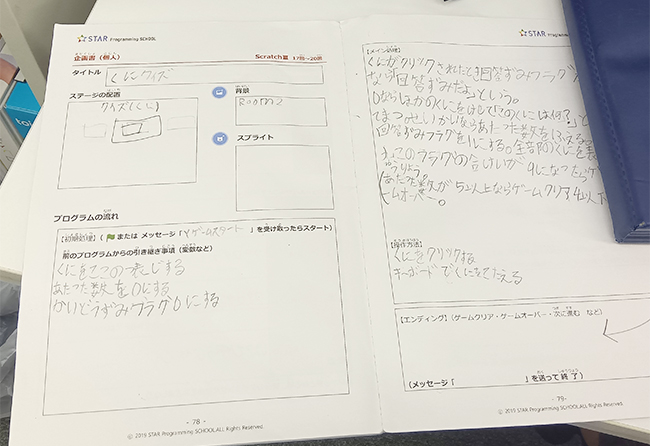 STAR Programming SCHOOL
企画書（個人）
Scratch Ⅲ 17回~20回
タイトル
くにクイズ
ステージの配置
クイズ(くに)
背景
Room2
スプライト
プログラムの流れ
【初期処理】( または メッセージ「ゲームスタート 」を受け取ったらスタート)
前のプログラムからの引き継ぎ事項（変数など）
くにを9つの表じする
あたった数を0にする
かいとうずみフラグ0にする
- 78 -
© 2019 STAR Programming SCHOOL.All Rights Reserved.
【メイン処理】
くにがクリックされたとき回答ずみフラグ
なら「回答ずみだよ」という。
0ならほかのくにをけして「このくには何?」と
まつ せいかいならあたった数を
回答ずみフラグを1にする。全部のくにを表
フラグの合けいが9になったら
あたった数が5以上ならゲームクリア4以下
ームオーバー。
【操作方法】
くにをクリックする
キーボードでくにをこたえる
【エンディング】(ゲームクリア・ゲームオーバー・次に進む など)
(メッセージ「 」を送って終了)
- 79-
© 2019 STAR Programming SCHOOL.All Rights Reserved.